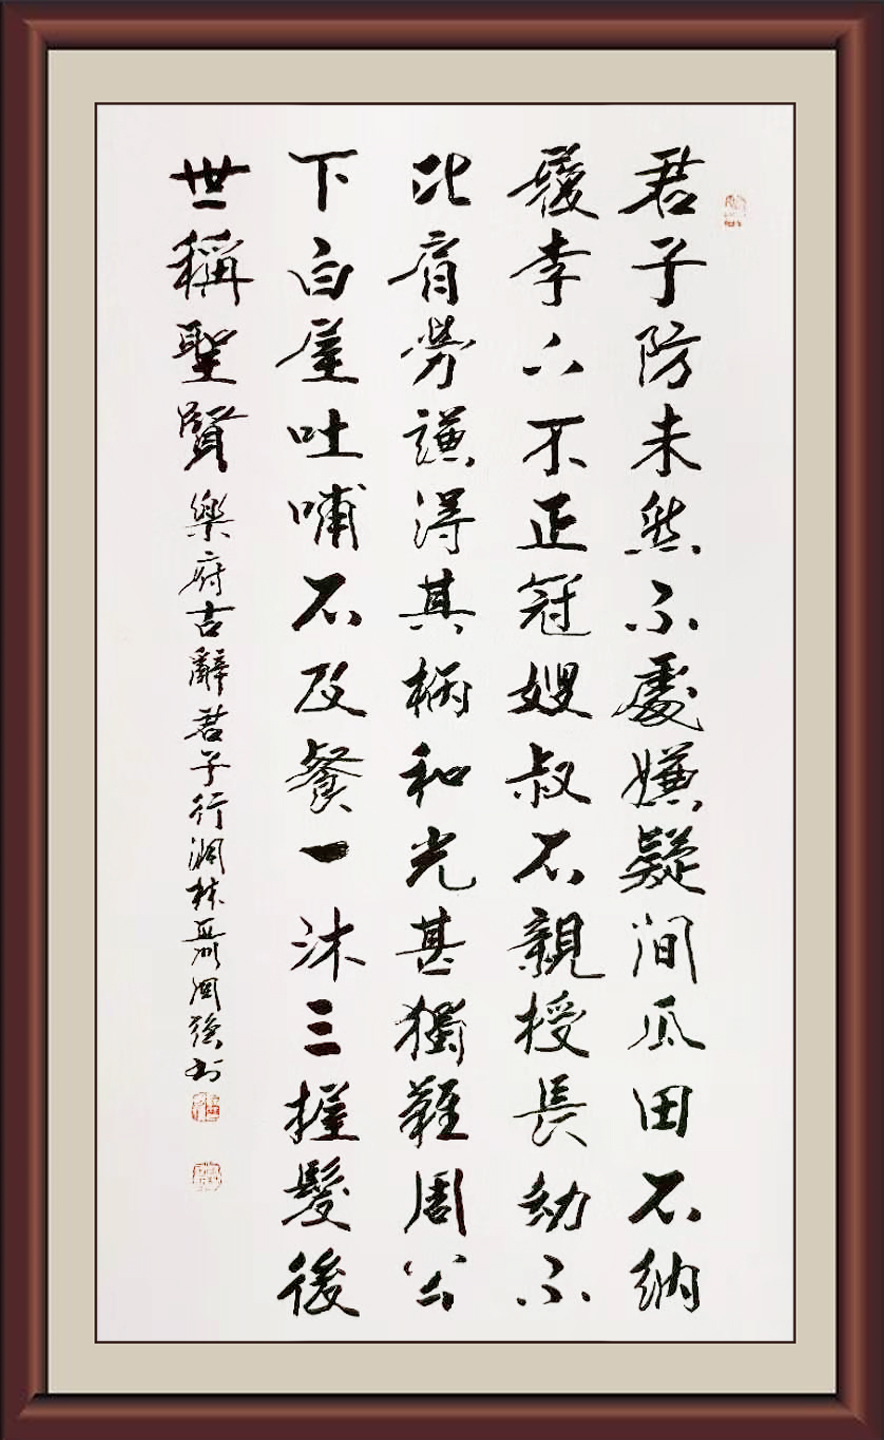 君子防未然不處嫌疑間瓜田不納
履李下不正冠嫂叔不親授長幼不
比肩勞謙得其柄和光甚獨難周公
下白屋吐哺不及餐一沐三握髮後
世稱聖賢樂府古辭君子行林聶国強書